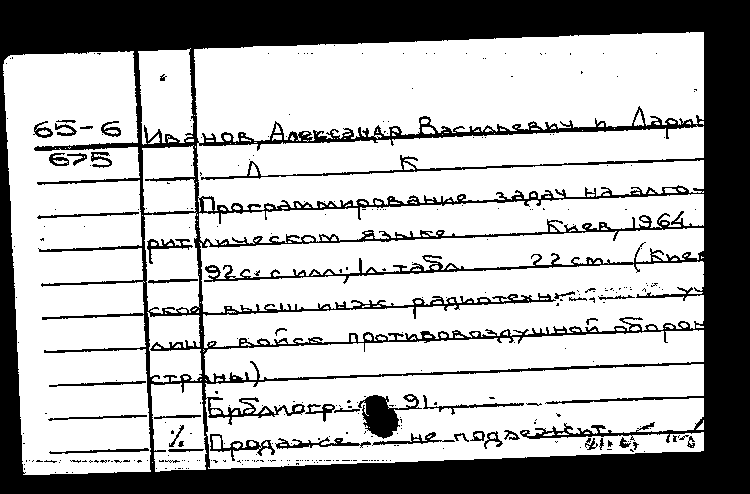 65-6
675
Иванов, Александр Васильевич и Ларин
Л К
Программирование задач на алго-
ритмическом языке. Киев, 1964.
92 с. с илл.; 1 л. табл. 22 см. (Киев
ское высш. инж. радиотехн. уч
лище войск противовоздушной оборон
страны).
Библиогр.: 91.
% Продаже не подлежит.